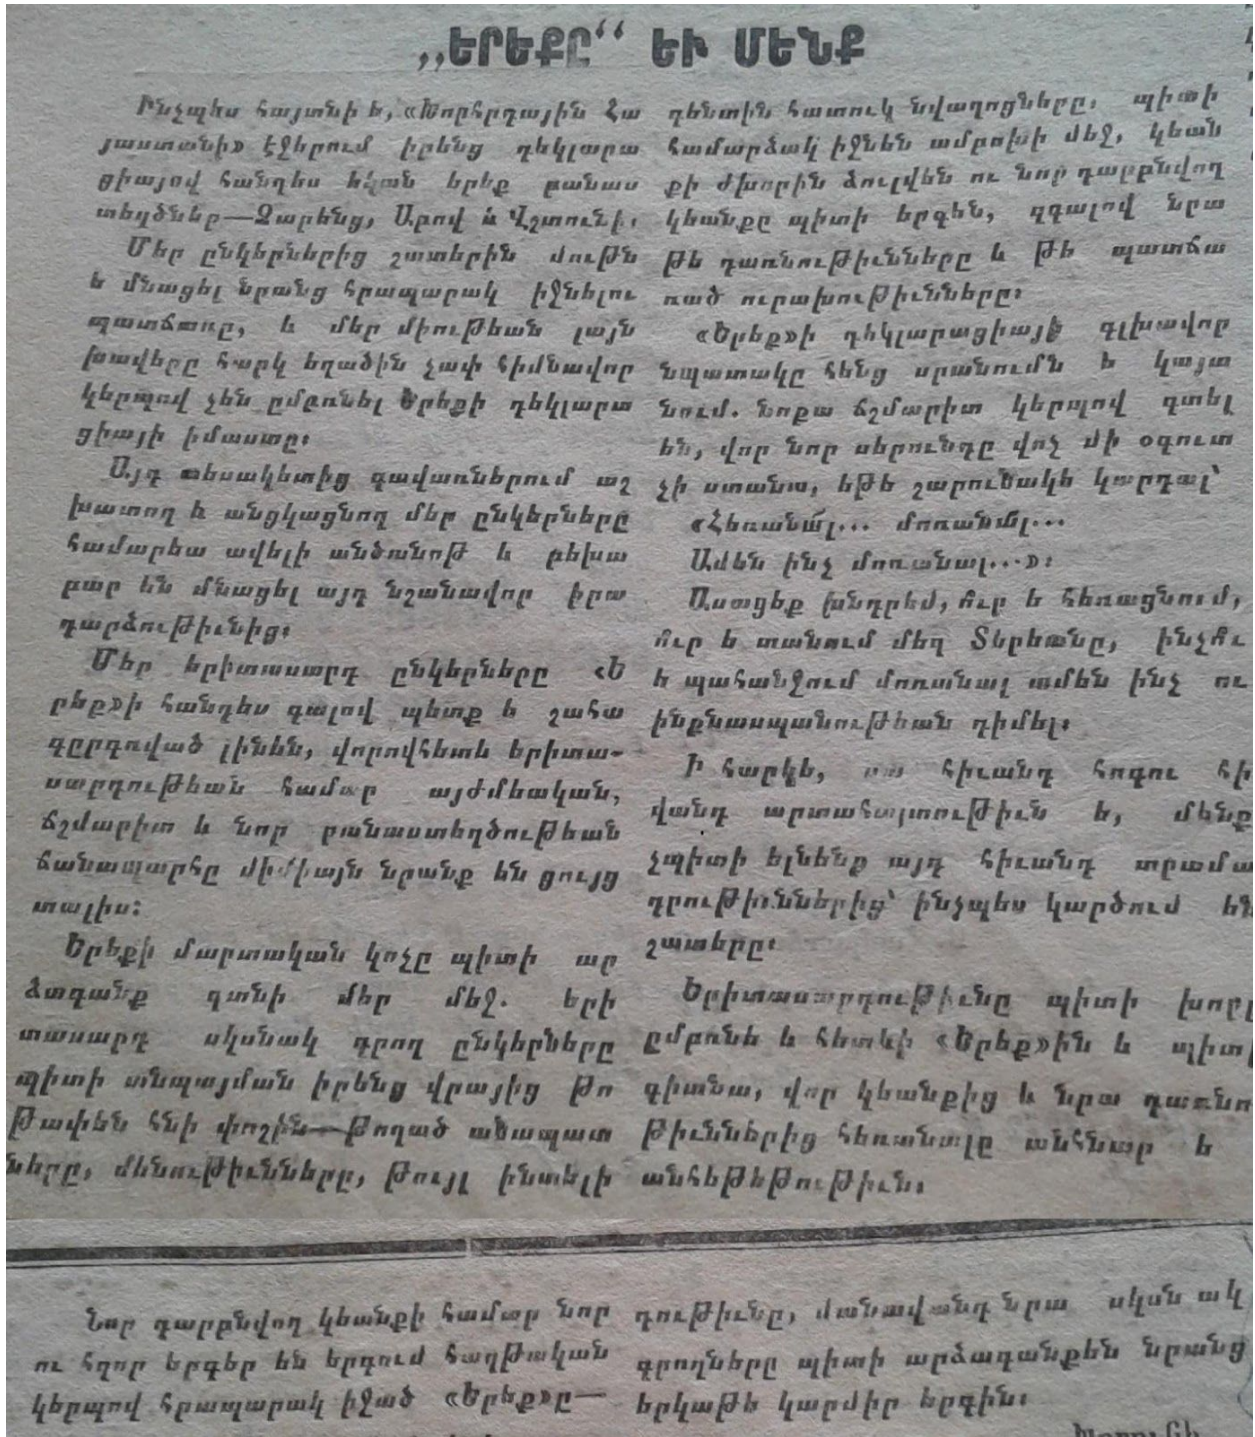 „ԵՐԵՔԸ“ ԵՒ ՄԵՆՔ
Ինչպես հայտնի ե, «Խորհրդային Հա
յաստանի» էջերում իրենց դեկլարա
ցիայով հանդես եկան երեք բանաս
տեղծներ—Չարենց, Աբով և Վշտունի։
Մեր ընկերներից շատերին մութն
ե մնացել նրանց հրապարակ իջնելու
պատճառը, և մեր միութեան լայն
խավերը հարկ եղածին չափ հիմնավոր
կերպով չեն ըմբռնել Երեքի դեկլարա
ցիայի իմաստը։
Այդ տեսակետից գավառներում աշ
խատող և անցկացնող մեր ընկերները
համարեա ավելի անծանոթ և բեխա
բար են մնացել այդ նշանավոր իրա
դարձութիւնից։
Մեր երիտասարդ ընկերները «Ե
րեք»ի հանդես գալով պետք ե շահա
գըրգռված լինեն, վորովհետև երիտա-
սարդութեան համար այժմեական,
ճշմարիտ և նոր բանաստեղծութեան
ճանապարհը միմիայն նրանք են ցույց
տալիս։
Երեքի մարտական կոչը պիտի ար
ձագանք գտնի մեր մեջ. երի
տասարդ սկսնակ գրող ընկերները
պիտի անպայման իրենց վրայից թո
թափեն հնի փոշին—թողած անապատ
ները, մենութիւնները, թույլ ինտելի
գենտին հատուկ նվաղոցները. պիտի
համարձակ իջնեն ամբոխի մեջ, կեան
քի ժխորին ձուլվեն ու նոր դարբնվող
կեանքը պիտի երգեն, զգալով նրա
թե դառնութիւնները և թե պատճա
ռած ուրախութիւնները։
«Երեք»ի դեկլարացիայի գլխավոր
նպատակը հենց սրանումն ե կայա
նում. նոքա ճշմարիտ կերպով գտել
են, վոր նոր սերունդը վոչ մի օգուտ
չի ստանա, եթե շարունակե կարդալ՝
«Հեռանալ... մոռանալ...
Ամեն ինչ մոռանալ...»։
Ասացեք խնդրեմ, ո՞ւր ե հեռացնում,
ո՞ւր ե տանում մեզ Տերեանը, ինչո՞ւ
ե պահանջում մոռանալ ամեն ինչ ու
ինքնասպանութեան դիմել։
Ի հարկե, սա հիւանդ հոգու հի
վանդ արտահայտութիւն ե, մենք
չպիտի ելնենք այդ հիւանդ տրամա
դրութիւններից՝ ինչպես կարծում են
շատերը։
Երիտասարդութիւնը պիտի խորը
ըմբռնե և հետևի «Երեք»ին և պիտի
գիտնա, վոր կեանքից և նրա դառնո
թիւններից հեռանալը անհնար ե
անհեթեթութիւն։
Նոր դարբնվող կեանքի համար նոր
ու հզոր երգեր են երդում հաղթական
կերպով հրապարակ իջած «Երեք»ը—
դութիւնը, մանավանդ նրա սկսնակ
գրողները պիտի արձագանքեն նրանց
երկաթե կարմիր երգին։